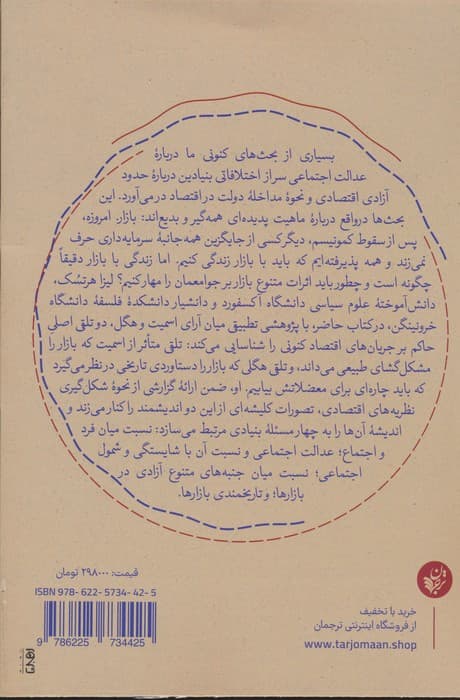 بسیاری از بحث‌های کنونی ما دربارهٔ
عدالت اجتماعی سر از اختلافاتی بنیادین دربارهٔ حدود
آزادی اقتصادی و نحوهٔ مداخلهٔ دولت در اقتصاد درمی‌آورد. این
بحث‌ها درواقع دربارهٔ ماهیت پدیده‌ای همه‌گیر و بدیع‌اند: بازار. امروزه،
پس از سقوط کمونیسم، دیگر کسی از جایگزین همه‌جانبهٔ سرمایه‌داری حرف
نمی‌زند و همه پذیرفته‌ایم که باید با بازار زندگی کنیم. اما زندگی با بازار دقیقاً
چگونه است و چطور باید اثرات متنوع بازار بر جوامعمان را مهار کنیم؟ لیزا هرتسُک،
دانش‌آموختهٔ علوم سیاسی دانشگاه آکسفورد و دانشیار دانشکدهٔ فلسفهٔ دانشگاه
خرونینگن، در کتاب حاضر، با پژوهشی تطبیقی میان آرای اسمیت و هگل، دو تلقی اصلی
حاکم بر جریان‌های اقتصاد کنونی را شناسایی می‌کند: تلقی متأثر از اسمیت که بازار را
مشکل‌گشای طبیعی می‌داند، و تلقی هگلی که بازار را دستاوردی تاریخی در نظر می‌گیرد
که باید چاره‌ای برای معضلاتش بیابیم. او، ضمن ارائهٔ گزارشی از نحوهٔ شکل‌گیری
نظریه‌های اقتصادی، تصورات کلیشه‌ای از این دو اندیشمند را کنار می‌زند و
اندیشهٔ آن‌ها را به چهار مسئلهٔ بنیادی مرتبط می‌سازد: نسبت میان فرد
و اجتماع؛ عدالت اجتماعی و نسبت آن با شایستگی و شمول
اجتماعی؛ نسبت میان جنبه‌های متنوع آزادی در
بازارها؛ و تاریخمندی بازارها.
قیمت: ۲۹۸۰۰۰ تومان
ISBN 978- 622- 5734- 42- 5
9 786225 734425
ترجمان
خرید با تخفیف
از فروشگاه اینترنتی ترجمان
www.tarjomaan.shop